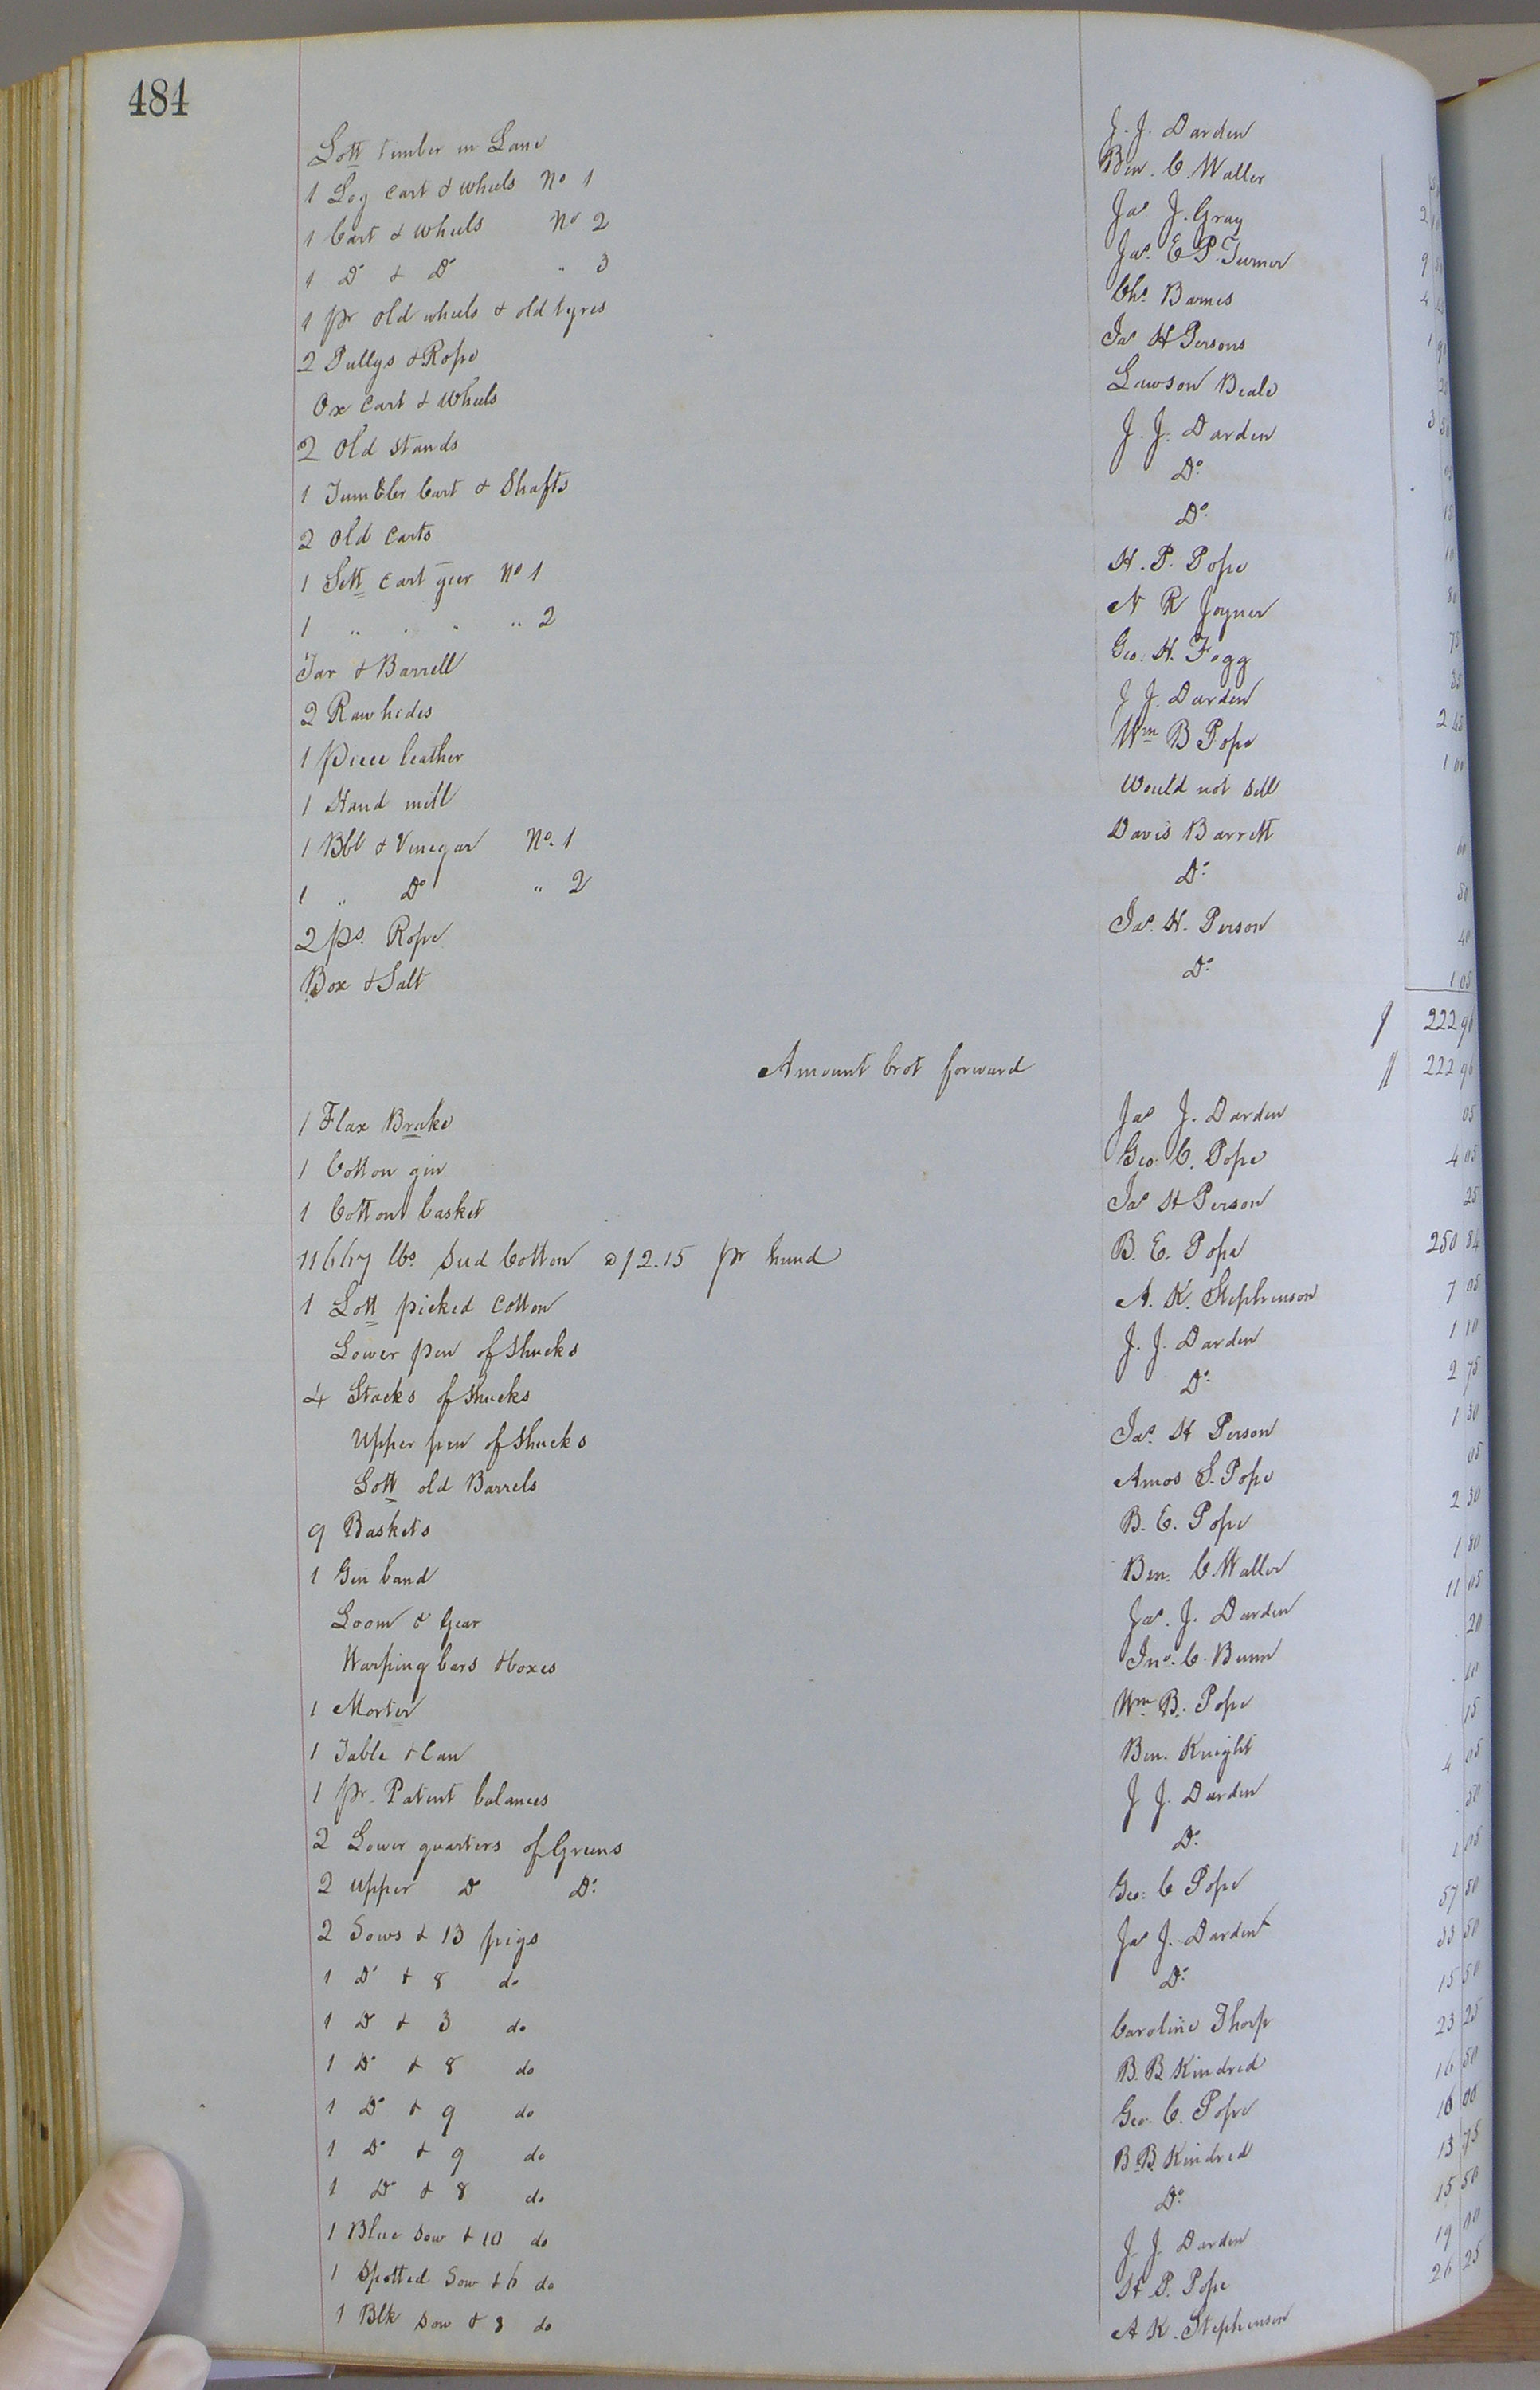 484
Lott timber in Lane J. J. Darden
1 Log cart & wheels No 1 Ben. C. Waller
1 Cart & wheels No 2 Jas J. Gray
1 Do & Do " 3 Jas. E P. Turner
1 pr old wheels & old tyres Chs. Barnes
2 Pullys & Rope Jas H Persons
Ox Cart & Wheels Lawson Beale
2 Old stands J. J. Darden
1 Tumbler Cart & Shafts Do
2 Old Carts Do
1 Sett cart geer No 1 H. P. Pope
1 " " " " 2 N R Joyner
Tar & Barrell Geo. H. Fogg
2 Raw hides J J. Darden
1 piece leather Wm B Pope
1 Hand mill Would not sell
1 Bbl & Vinegar No. 1 Davis Barrett 60
1 " Do " 2 Do 50
2 ps. Rope Jas. H. Person 40
Box & Salt Do 1 05
222 96
Amount brot forward 222 96
1 Flax Brake Jas J. Darden 05
1 Cotton gin Geo. C. Pope 4 05
1 Cotton basket Jas H Person 25
11667 lbs. Seed Cotton @ $2.15 pr hund B. E. Pope 250 84
1 Lott picked cotton A. K. Stephenson 7 05
Lower pen of shucks J. J. Darden 1 10
4 Stacks of shucks Do 2 75
Upper pen of shucks Jas. H Person 1 30
Lott old Barrels Amos S. Pope 05
9 Baskets B. E. Pope 2 30
1 Gin band Ben. C. Waller 1 80
Loom & Gear Jas. J. Darden 11 05
Warping bars & boxes Jno. C. Bunn 20
1 Morter Wm. B. Pope 10
1 Table & Can Ben. Knight 15
1 pr. Patent balances J J. Darden 4 05
2 Lower quarters of Greens Do 50
2 Upper Do Do Geo. C Pope 1 05
2 Sows & 13 pigs Jas J. Darden 57 50
1 Do & 8 do Do 33 50
1 Do & 3 do Caroline Thorp 15 50
1 Do & 8 do B. B. Kindred 23 25
1 Do & 9 do Geo. C. Pope 16 50
1 Do & 9 do B. B. Kindred 16 00
1 Do & 8 do Do 13 75
1 Blue Sow & 10 do J J. Darden 15 50
1 Spotted Sow & 6 do H. P. Pope 19 00
1 Blk Sow & 8 do A K. Stephenson 26 25